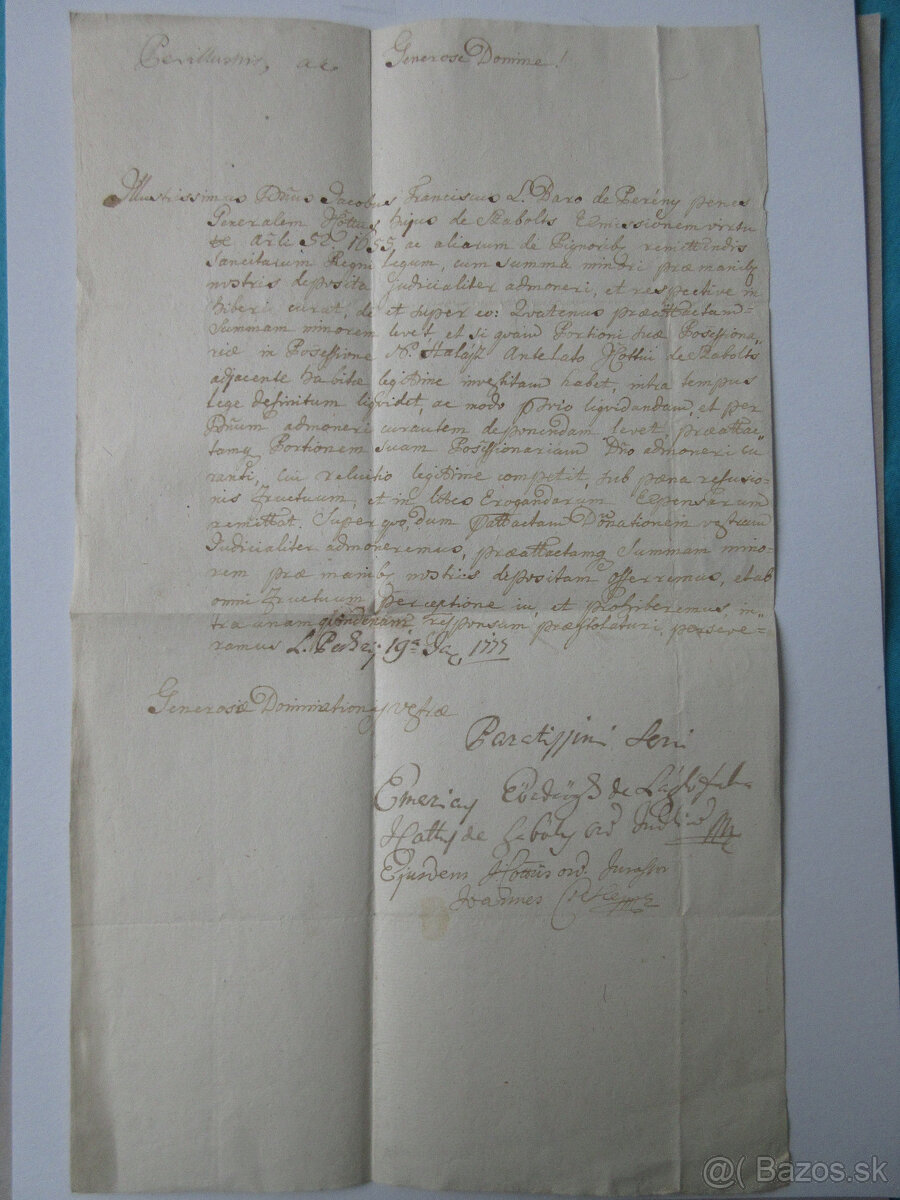 Perillustris, ac Generose Domine!
Illustrissimus Dnus Jacobus Franciscus L. Baro de Perény penes
Generalem Cottus hujus de Szabolts Exmissionem virtu
te Arli 52. 1655, ac aliarum de Pignorib remittendis
Sancitarum Regni legum, cum summa minori præ manib
nostris deposita Judicialiter admoneri, et respective in
hiberi curat, de et super eo: Quatenus præattactam
Summam minorem levet, et si quam Portioni suæ Possessiona„
riæ in Possessione N. Antelato Cottui de Szabolts
adjacente habitæ legitime investitam habet, intra tempus
lege definitum liquidet, ac modo prio liquidandam, et per
Dnum admoneri curantem deponendam levet, præattac„
tamq Portionem suam Possessionariam Dno admoneri cu
ranti, cui reluitio legitime competit, sub pæna refusio„
nis Fructuum, et in lobco Erogandarum Expensarum
remittat. Superquo, dum pttactam Dnationem vestram
Judicialiter admoneremus, præattactamq Summam mino„
rem præ manib nostris depositam offerremus, et ab
omni Fructuum perceptione in, et prohiberemus, in„
tra unam quindenam responsum præstolaturi, perseve„
ramus 19a 1777
Generosæ Dominationis vestræ
Paratissimi Servi
Emericus de
Cottus de ord Judlium
Ejusdem Cottus ord. Jurassor
Joannes
@( Bazos.sk